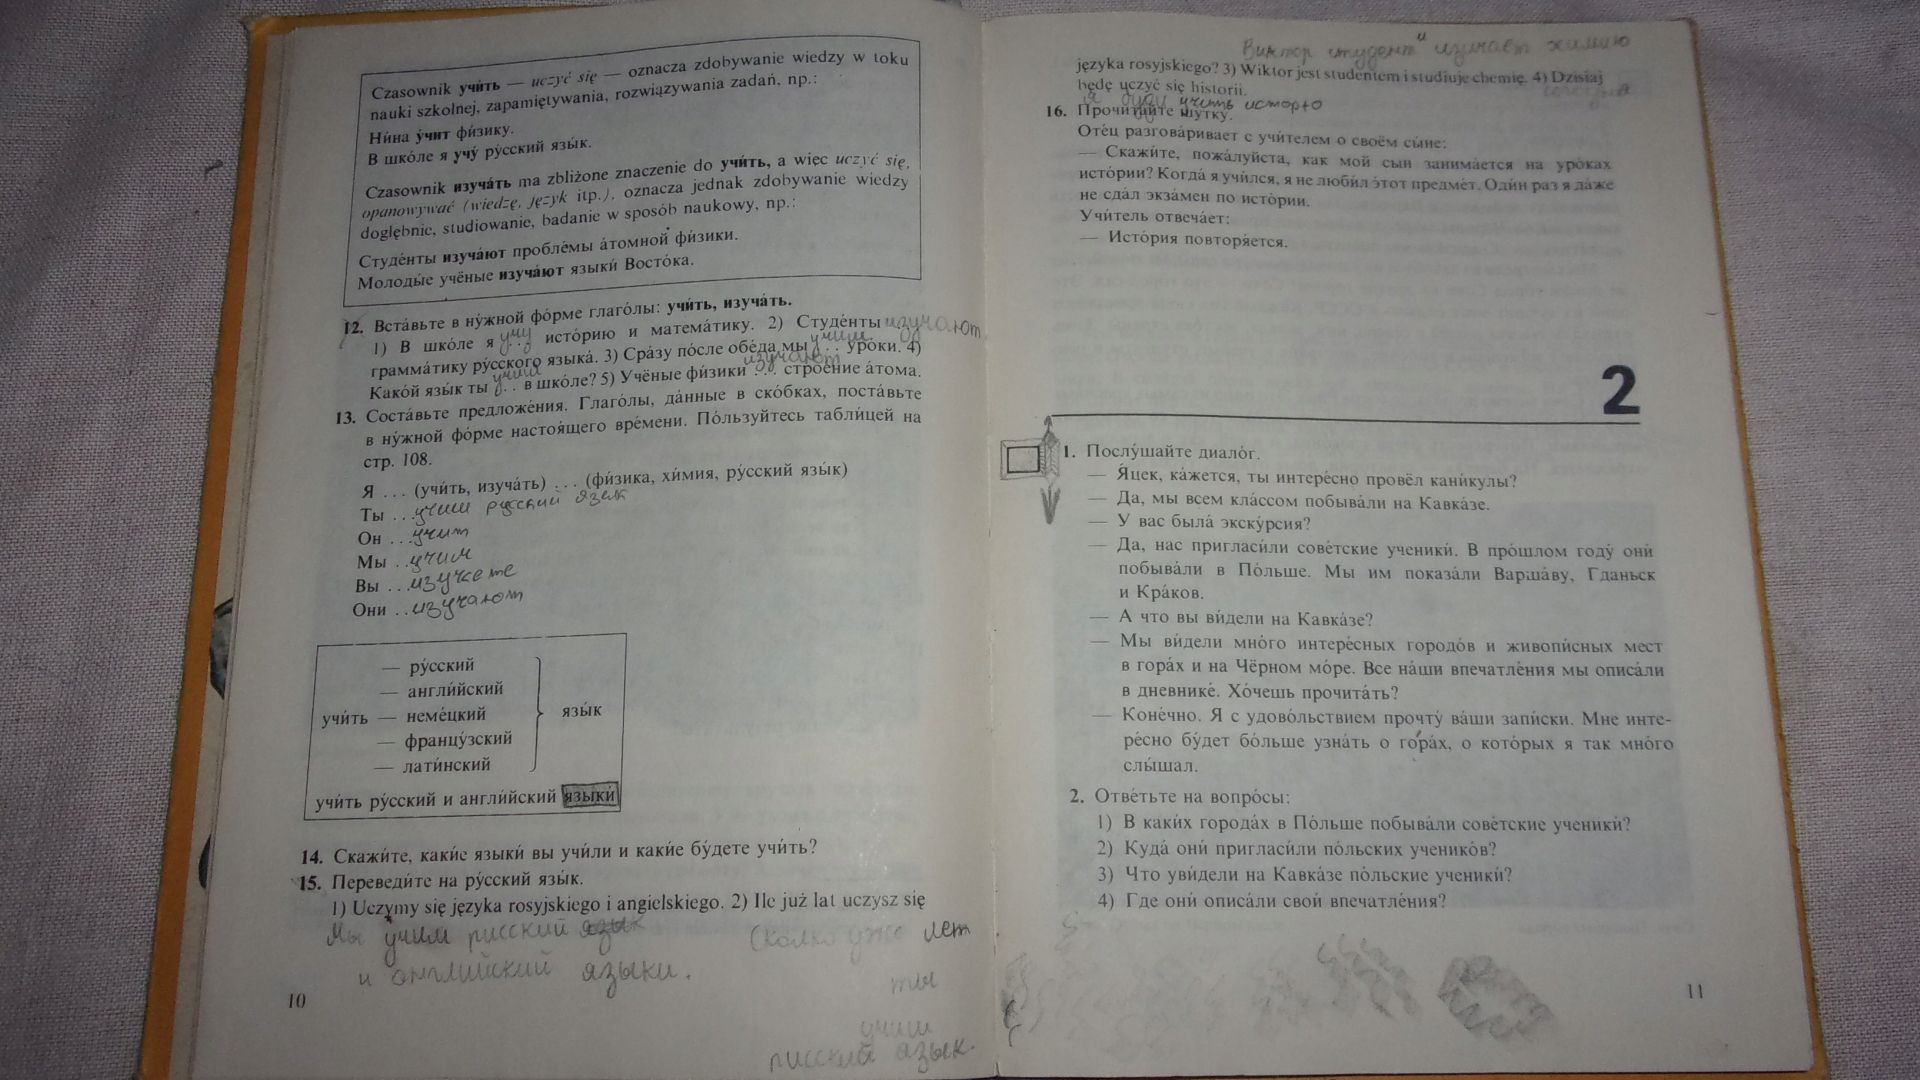 Czasownik учи́ть — uczyć się — oznacza zdobywanie wiedzy w toku
nauki szkolnej, zapamiętywania, rozwiązywania zadań, np.:
Ни́на у́чит фи́зику.
В шко́ле я учу́ ру́сский язы́к.
Czasownik изуча́ть ma zbliżone znaczenie do учи́ть, a więc uczyć się,
opanowywać (wiedzę, język itp.), oznacza jednak zdobywanie wiedzy
dogłębnie, studiowanie, badanie w sposób naukowy, np.:
Студе́нты изуча́ют пробле́мы а́томной фи́зики.
Молоды́е учёные изуча́ют языки́ Восто́ка.
12. Вста́вьте в ну́жной фо́рме глаго́лы: учи́ть, изуча́ть.
1) В шко́ле я учу исто́рию и матема́тику. 2) Студе́нты изучают
грамма́тику ру́сского языка́. 3) Сра́зу по́сле обе́да мы учим уро́ки. 4)
Како́й язы́к ты учиш в шко́ле? 5) Учёные фи́зики изучают строе́ние а́тома.
13. Соста́вьте предложе́ния. Глаго́лы, да́нные в ско́бках, поста́вьте
в ну́жной фо́рме настоя́щего вре́мени. По́льзуйтесь табли́цей на
стр. 108.
Я ... (учи́ть, изуча́ть) ... (фи́зика, хи́мия, ру́сский язы́к)
Ты ... учиш русский язык
Он ... учит
Мы ... учим
Вы ... изучаете
Они ... изучают
— ру́сский
— англи́йский
учи́ть — неме́цкий язы́к
— францу́зский
— лати́нский
учи́ть ру́сский и англи́йский языки́
14. Скажи́те, каки́е языки́ вы учи́ли и каки́е бу́дете учи́ть?
15. Переведи́те на ру́сский язы́к.
1) Uczymy się języka rosyjskiego i angielskiego. 2) Ile już lat uczysz się
Мы учим русский язык Сколко уже лет
и английский языки. ты
учиш
русский язык.
10
Виктор студент и изучает химию
języka rosyjskiego? 3) Wiktor jest studentem i studiuje chemię. 4) Dzisiaj
będę uczyć się historii.
я буду учить исторю
16. Прочита́йте шу́тку.
Оте́ц разгова́ривает с учи́телем о своём сы́не:
— Скажи́те, пожа́луйста, как мой сын занима́ется на уро́ках
исто́рии? Когда́ я учи́лся, я не люби́л э́тот предме́т. Оди́н раз я да́же
не сдал экза́мен по исто́рии.
Учи́тель отвеча́ет:
— Исто́рия повторя́ется.
2
1. Послу́шайте диало́г.
— Я́цек, ка́жется, ты интере́сно провёл кани́кулы?
— Да, мы всем кла́ссом побыва́ли на Кавка́зе.
— У вас была́ экску́рсия?
— Да, нас пригласи́ли сове́тские ученики́. В про́шлом году́ они́
побыва́ли в По́льше. Мы им показа́ли Варша́ву, Гданьск
и Кра́ков.
— А что вы ви́дели на Кавка́зе?
— Мы ви́дели мно́го интере́сных городо́в и живопи́сных мест
в гора́х и на Чёрном мо́ре. Все на́ши впечатле́ния мы описа́ли
в дневнике́. Хо́чешь прочита́ть?
— Коне́чно. Я с удово́льствием прочту́ ва́ши запи́ски. Мне инте-
ре́сно бу́дет бо́льше узна́ть о гора́х, о кото́рых я так мно́го
слы́шал.
2. Отве́тьте на вопро́сы:
1) В каки́х города́х в По́льше побыва́ли сове́тские ученики́?
2) Куда́ они́ пригласи́ли по́льских ученико́в?
3) Что уви́дели на Кавка́зе по́льские ученики́?
4) Где они́ описа́ли свои́ впечатле́ния?
11